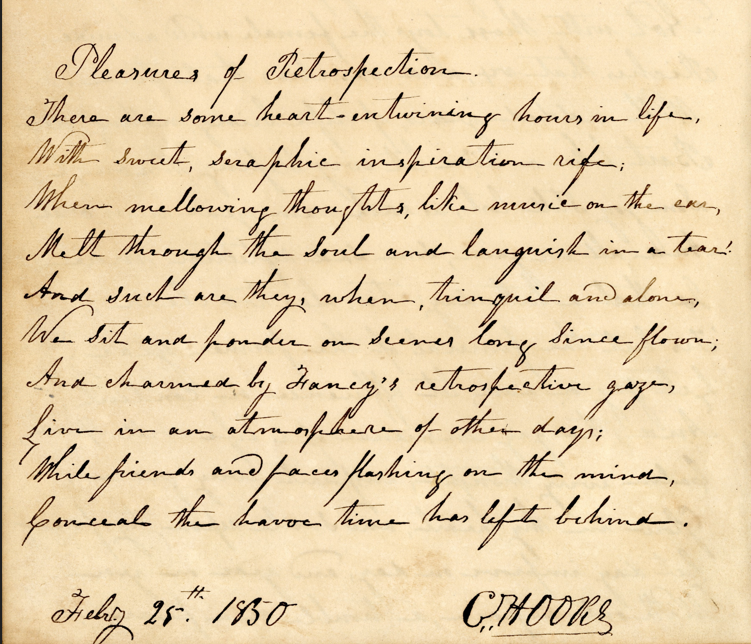 Pleasures of Retrospection.
There are some heart-entwining hours in life,
With sweet, seraphic inspiration rife;
When mellowing thoughts, like music on the ear,
Melt through the soul and languish in a tear!
And such are they, when, trinquil and alone,
We sit and ponder on scenes long since flown;
And charmed by Fancy's retrospective gaze,
Live in an atmosphere of other days;
While friends and faces flashing on the mind,
Conceal the havoc time has left behind.
Feby 25th. 1850
C. HOOKE